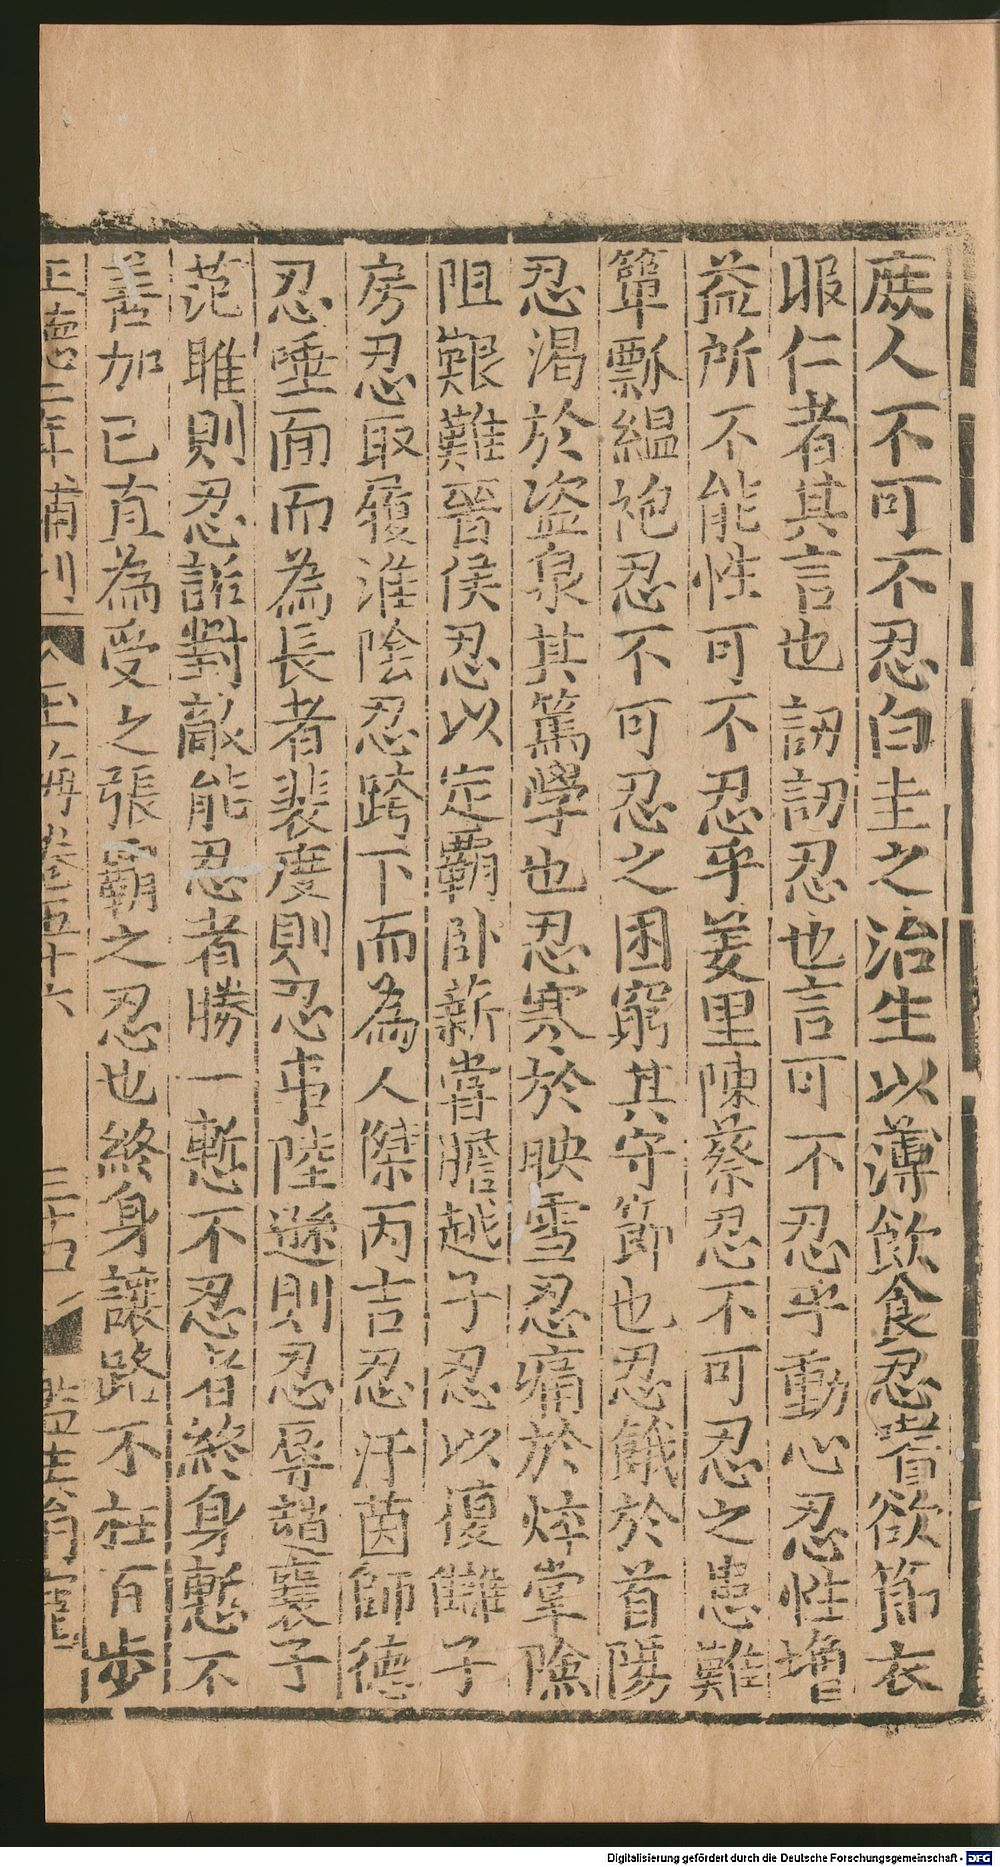 疾人不可不忍白圭之治生以薄飲食忍嗜欲節衣
服仁者其言也訒訒忍也言可不忍乎動心忍性增
益所不能性可不忍乎羑里陳蔡忍不可忍之患難
簞瓢縕袍忍不可忍之困窮其守節也忍餓於首陽
忍渴於盗泉其篤學也忍寒於映雪忍痛於焠掌險
阻艱難晉侯忍以定覇卧薪嘗膽越子忍以復讎子
房忍取履淮陰忍跨下而為人傑丙吉忍汙茵師德
忍唾面而為長者裴度則忍事陸遜則忍辱誚襄子
范雎則忍詬對敵能忍者勝一慙不忍者終身慙不
善加已直為受之張霸之忍也終身讓路不枉百步
正德二年補刊 玉海卷五十六 三十六 監生
Digitalisierung gefördert durch die Deutsche Forschungsgemeinschaft - DFG